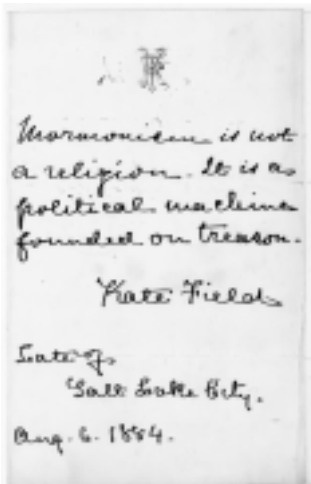 Mormonism is not
a religion. It is a
political machine
founded on treason.
Kate Field
Late of
Salt Lake City.
Aug. 6. 1884.